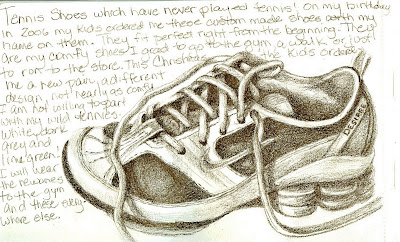 Tennis Shoes which have never played tennis! On my birthday
in 2006 my kids ordered me these custom made shoes with my
name on them. They fit perfect right from the beginning. They
are my comfy shoes I used to go to the gym, a walk, or just
to run to the store. This Christmas the kids ordered
me a new pair, a different
design, not nearly as comfy.
I am not willing to part
with my wild tennies.
White, dark
grey and
lime green.
I will wear
the new ones
to the gym
and these every
where else.
DESIREE